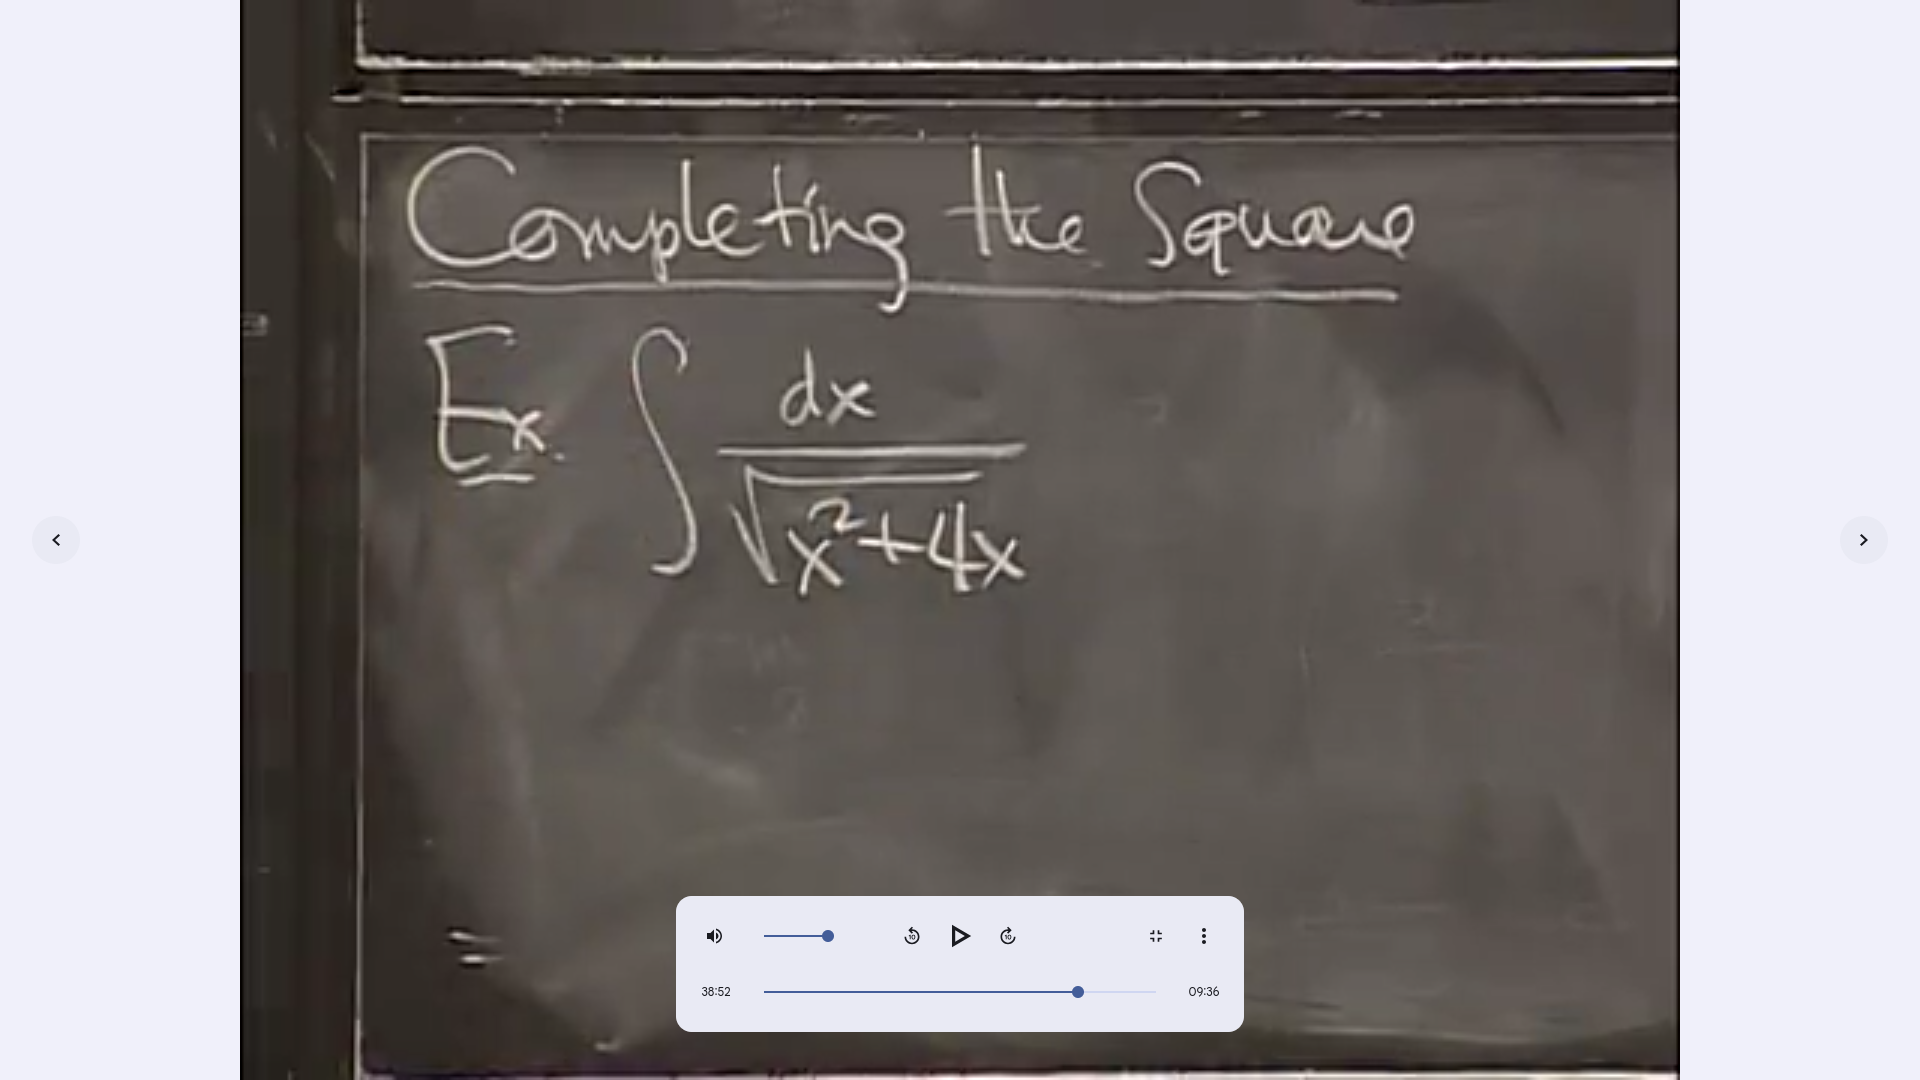 Completing the Square
Ex. ∫ dx / √x²+4x
=
38:52
09:36